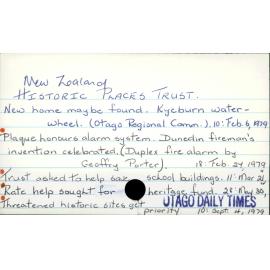 New Zealand
HISTORIC PLACES TRUST.
New home maybe found. Kyeburn water-
wheel. (Otago Regional Comm.). 10: Feb. 6, 1979
Plaque honours alarm system. Dunedin fireman's
invention celebrated. (Duplex fire alarm by
Geoffry Porter). 18: Feb. 27 1979
Trust asked to help save school buildings. 11: Mar 21
Rate help sought for heritage fund. 28: May 30,
Threatened historic sites get priority 10: Sept. 4, 1979
OTAGO DAILY TIMES